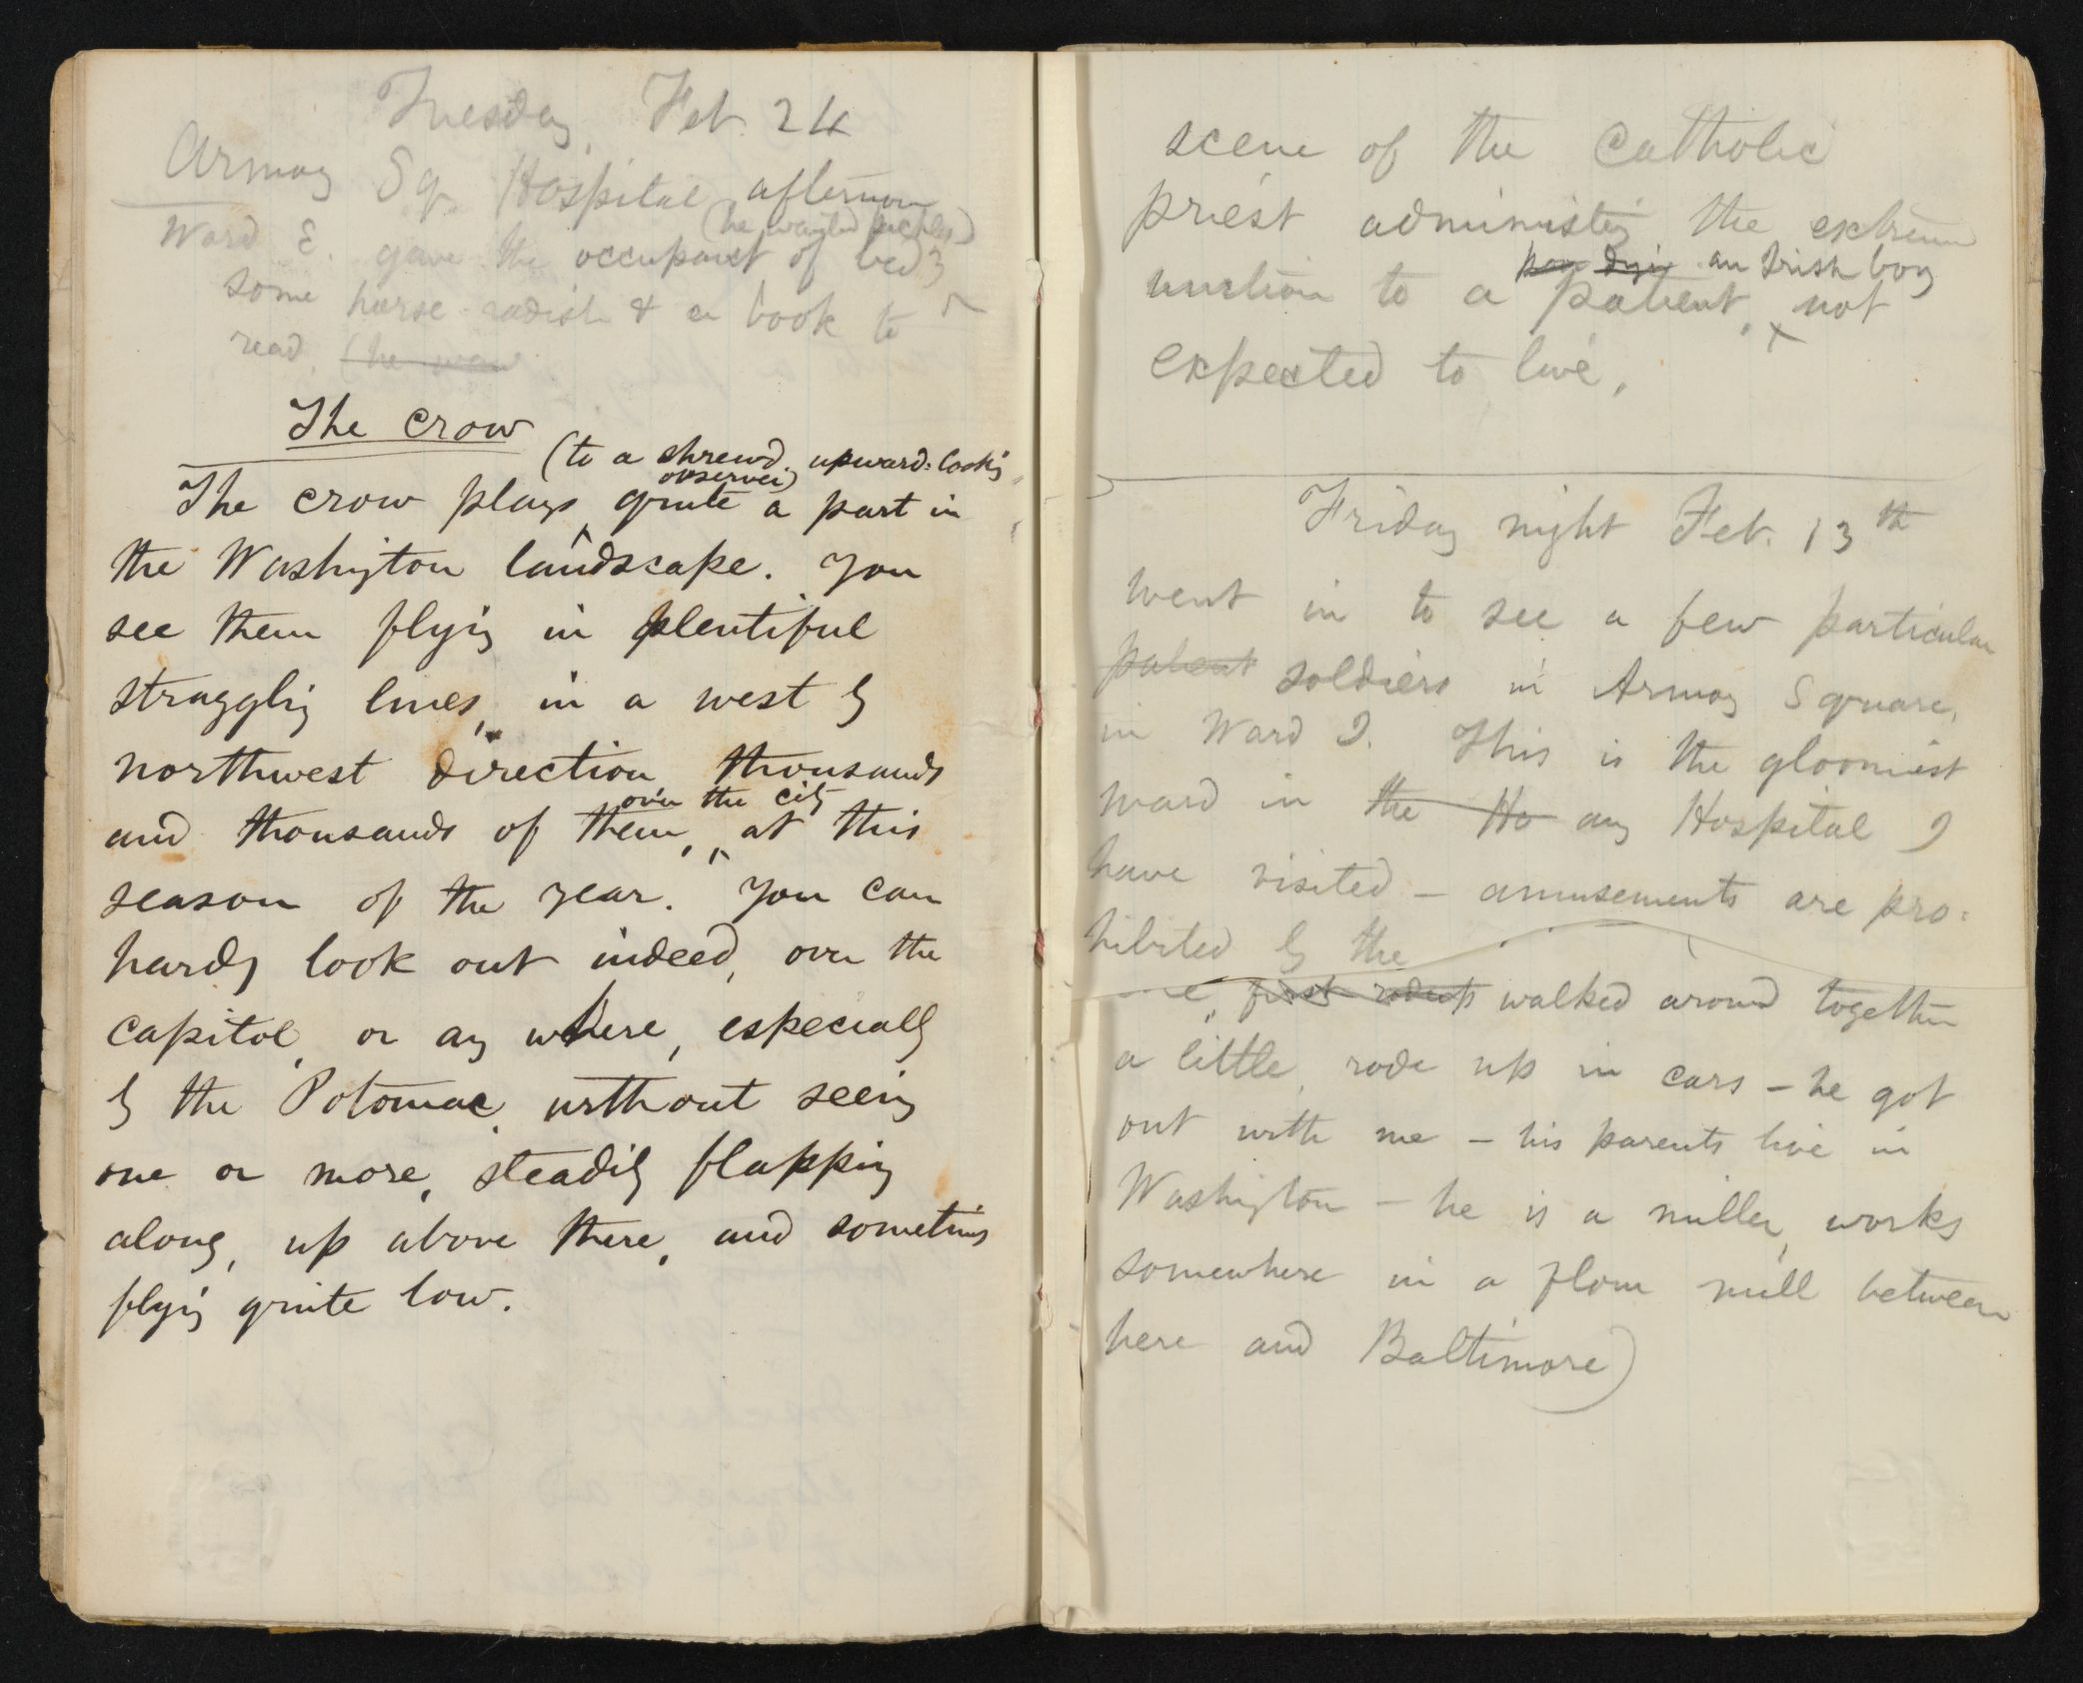 Tuesday, Feb. 24
Armory Sq. Hospital afternoon
(he wanted pickles)
Ward E. gave the occupant of bed 3
some horse-radish & a book to
read. (he wan
The Crow
(to a shrewd, upward-looking
observer)
The crow plays quite a part in
the Washington landscape. You
see them flying in plentiful
straggling lines, in a west by
northwest direction, thousands
over the city
and thousands of them, at this
season of the year. You can
hardly look out indeed, over the
Capitol, or any where, especially
by the Potomac, without seeing
one or more, steadily flapping
along, up above there, and sometimes
flying quite low.
scene of the Catholic
priest administing the extreme
unction to a patient, not
dying an Irish boy
expected to live.
Friday night Feb. 13th
went in to see a few particular
patient soldiers in Armory Square,
in Ward I. This is the gloomiest
ward in the Ho any Hospital I
have visited – amusements are pro=
hibited by the
first rode up walked around together
a little, rode up in cars – he got
out with me – his parents live in
Washington – he is a miller, works
somewhere in a flour mill between
here and Baltimore)